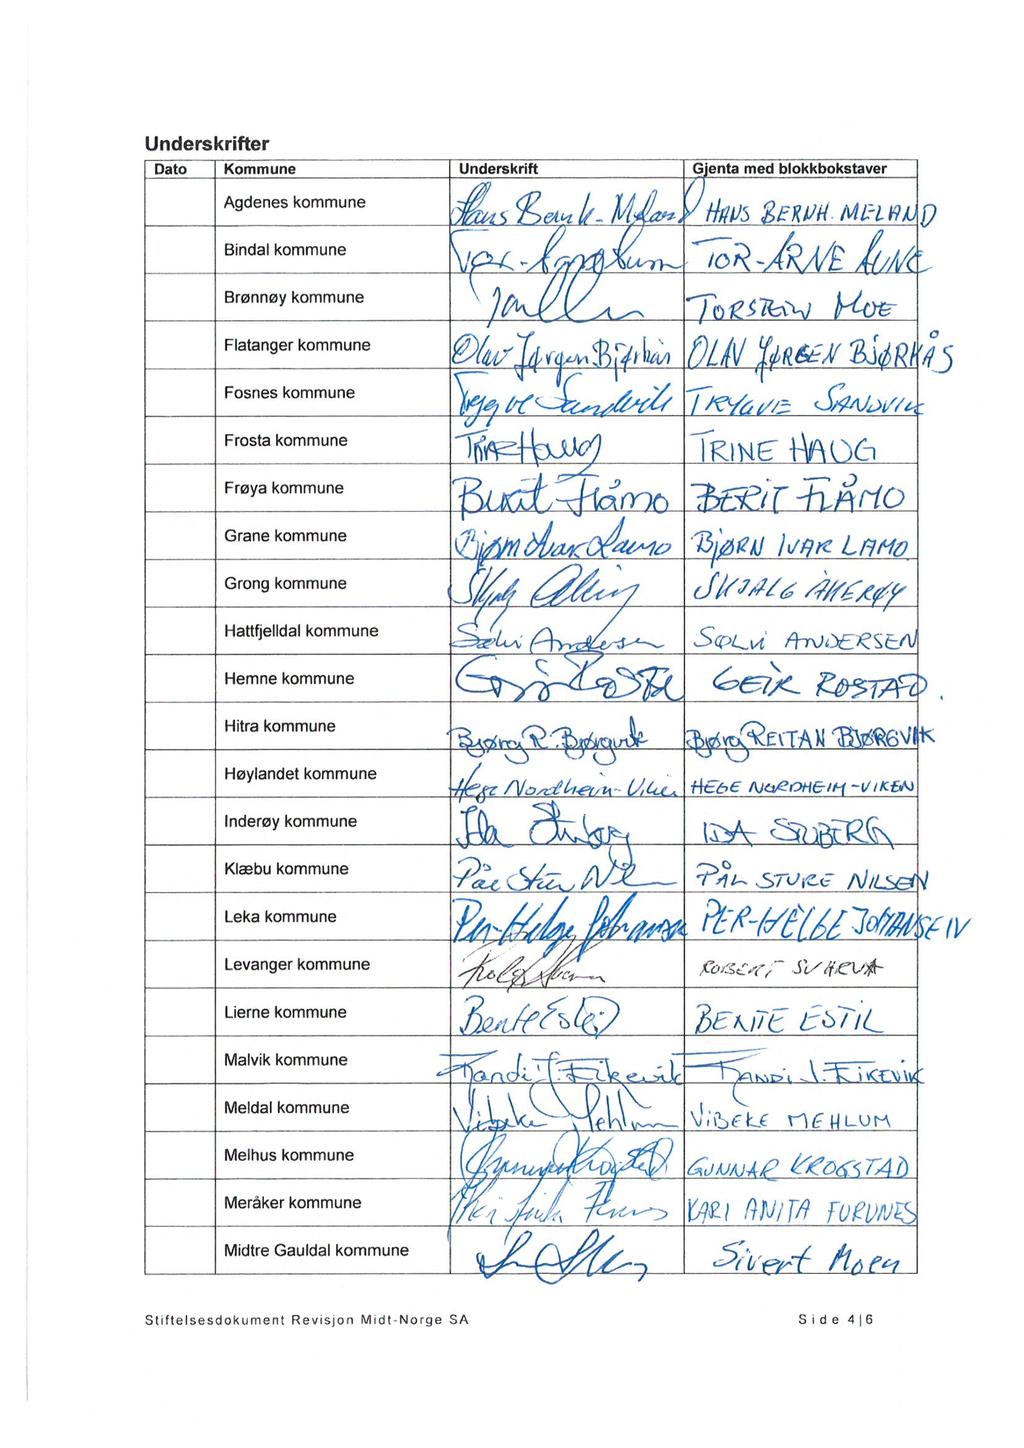 Underskrifter
Dato Kommune Underskrift Gjenta med blokkbokstaver
Agdenes kommune Hans Bernh. Meland HANS BERNH. MELAND
Bindal kommune Tor-Arne Aune TOR-ARNE AUNE
Brønnøy kommune TORSTEIN MOE
Flatanger kommune Olav Jørgen Bjørkås OLAV JØRGEN BJØRKÅS
Fosnes kommune Trygve Sandvik TRYGVE SANDVIK
Frosta kommune Trine Haug TRINE HAUG
Frøya kommune Berit Flåmo BERIT FLÅMO
Grane kommune Bjørn Ivar Lamo BJØRN IVAR LAMO
Grong kommune SKJALG ÅKERØY
Hattfjelldal kommune Sølvi Andersen SØLVI ANDERSEN
Hemne kommune GEIR ROSTAD
Hitra kommune Bjørg R. Bjørgvik Bjørg REITAN BJØRGVIK
Høylandet kommune Hege Nordheim-Viken HEGE NORDHEIM-VIKEN
Inderøy kommune Ida Stuberg IDA STUBERG
Klæbu kommune Pål Sture Nilsen PÅL STURE NILSEN
Leka kommune Per-Helge Johansen PER-HELGE JOHANSEN
Levanger kommune ROBERT SVARVA
Lierne kommune Bente Estil BENTE ESTIL
Malvik kommune Randi J. Eikevik RANDI J. EIKEVIK
Meldal kommune Vibeke Mehlum VIBEKE MEHLUM
Melhus kommune Gunnar Krogstad GUNNAR KROGSTAD
Meråker kommune Kari Anita Furunes KARI ANITA FURUNES
Midtre Gauldal kommune Sivert Moen
Stiftelsesdokument Revisjon Midt-Norge SA Side 4|6